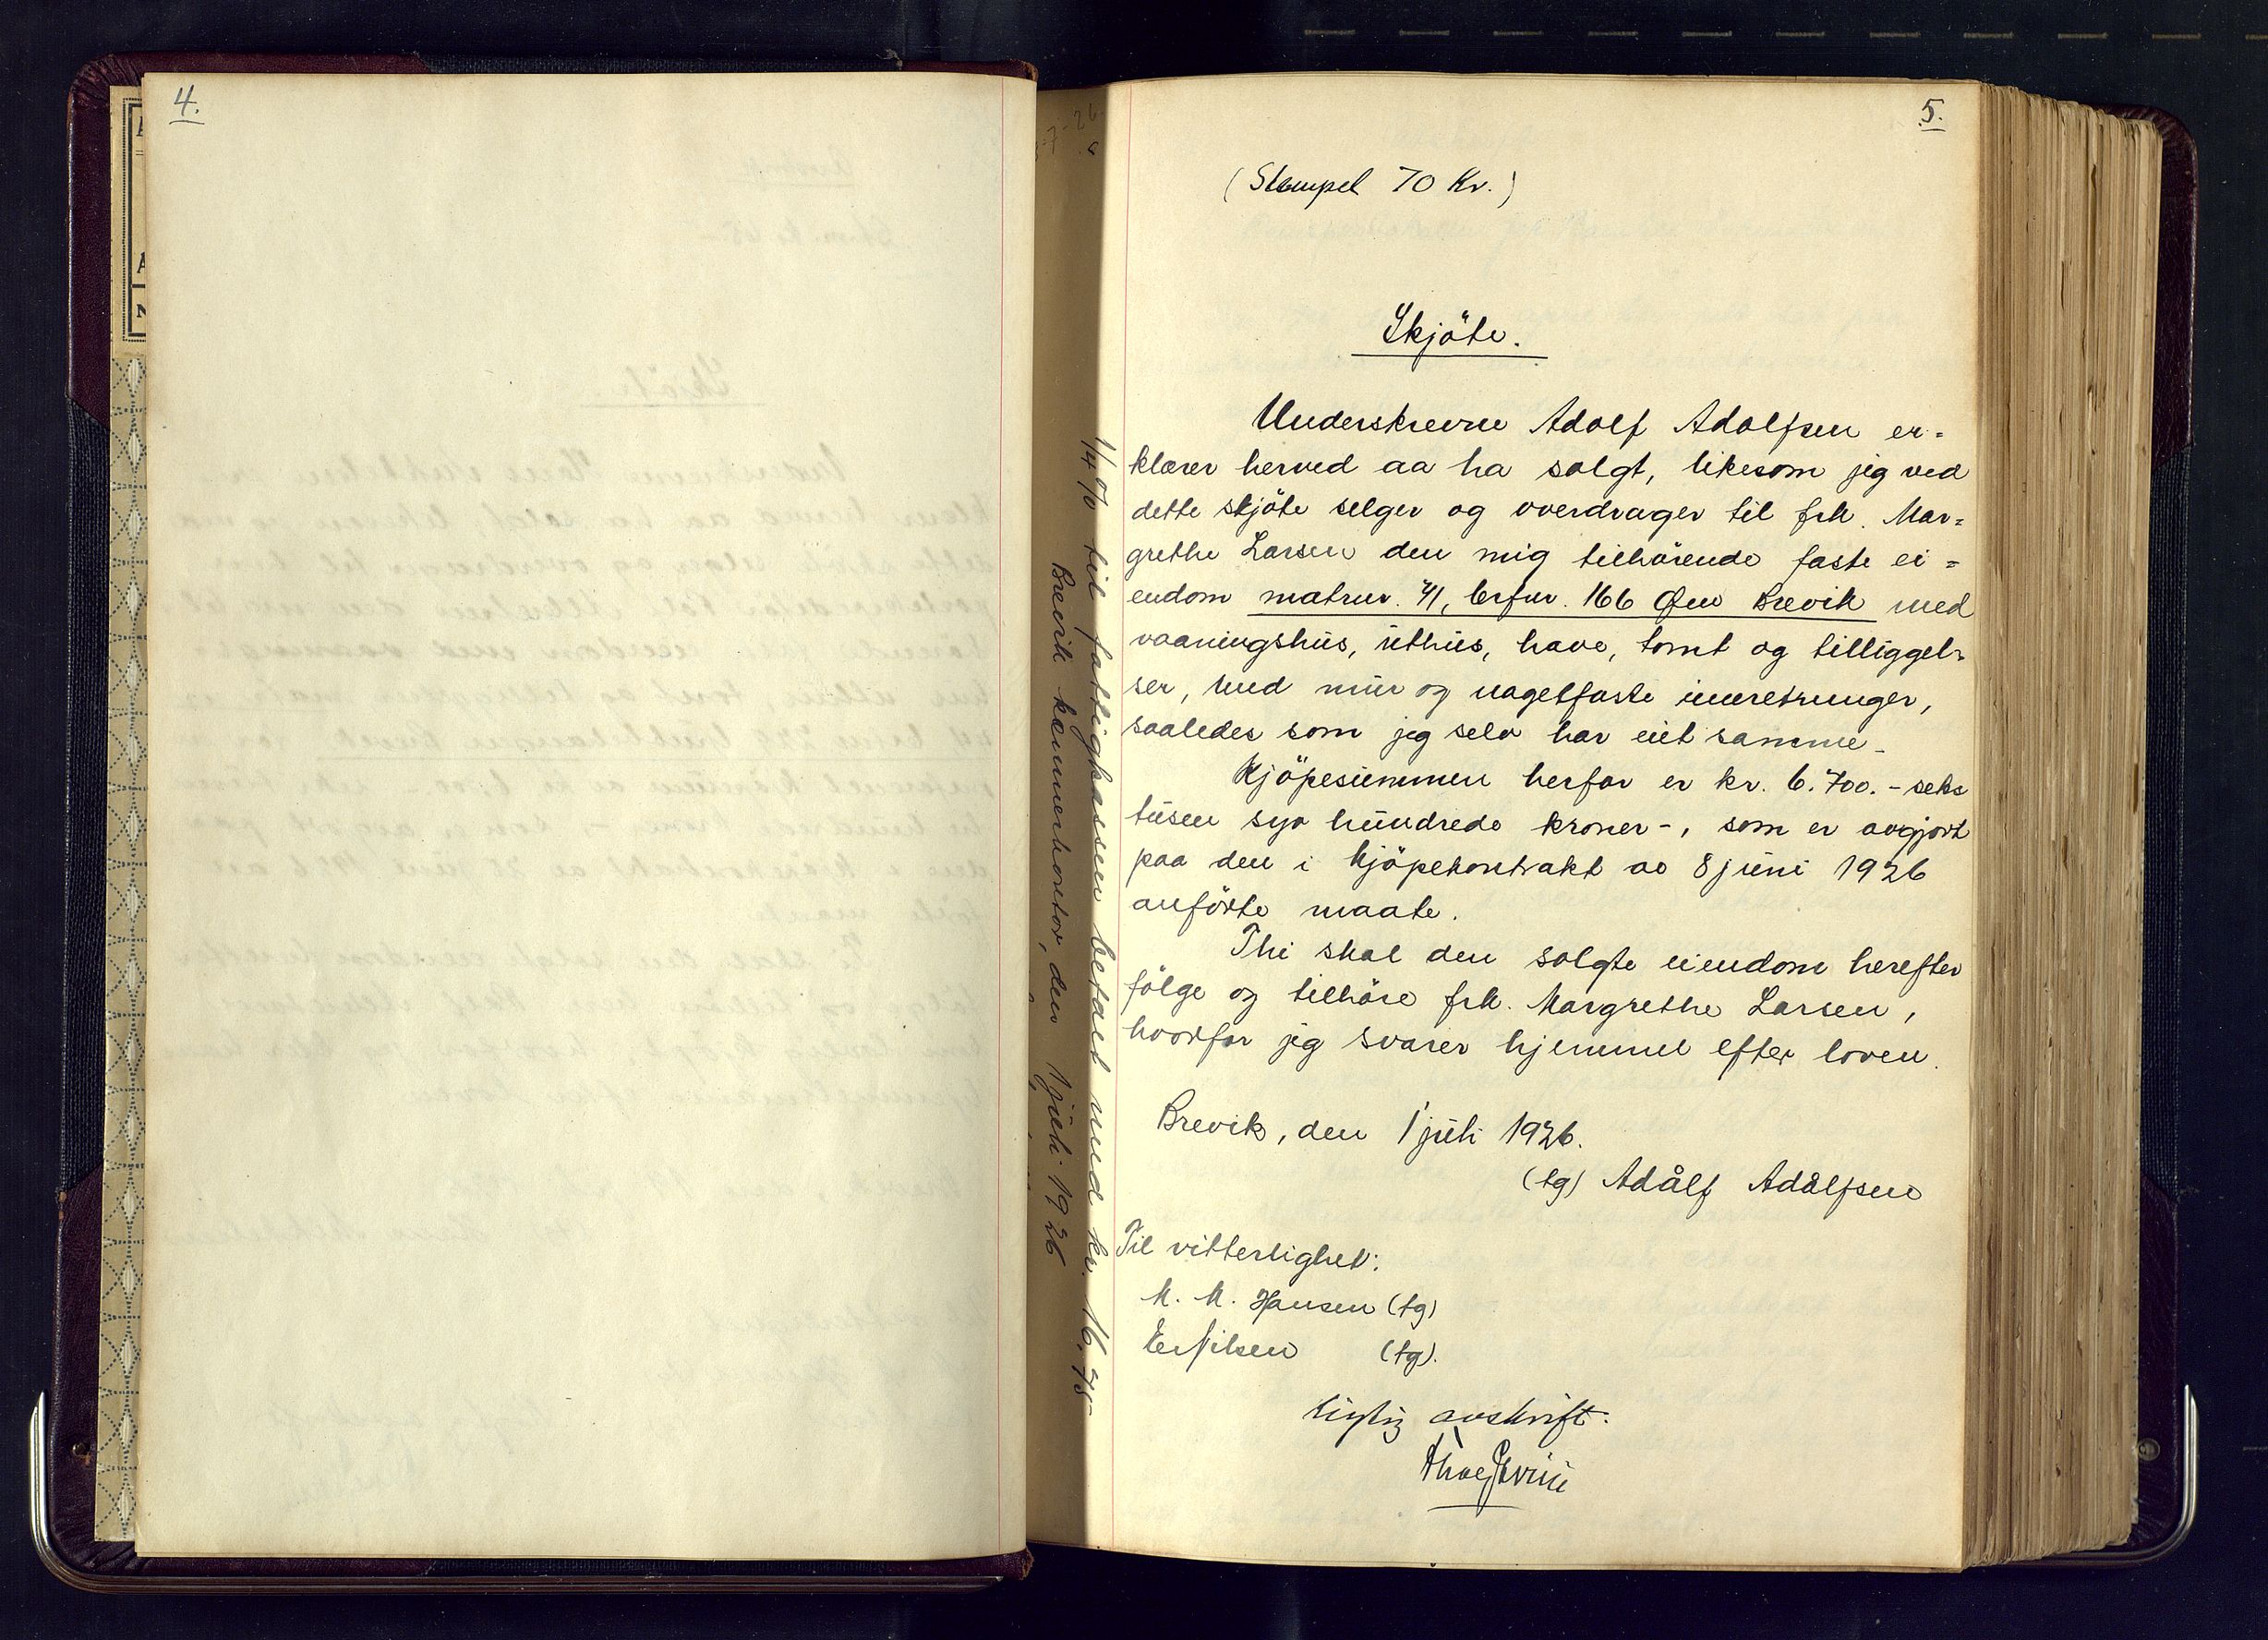 4.
5.
(Stempel 70 Kr.)
Skjöte.
Underskrevne Adolf Adolfsen er=
klærer herved aa ha solgt, likesom jeg ved
dette skjöte selger og overdrager til frk. Mar=
grethe Larsen den mig tilhörende faste ei=
endom matrnr. 41, brfnr. 166 Øen Brevik med
vaaningshus, uthus, have, tomt og tilliggel=
ser, med mur og nagelfaste innretninger,
saaledes som jeg selv har eiet samme.
Kjöpesummen herfor er kr. 6.700.- seks
tusen syv hundrede kroner-, som er avgjort
paa den i kjöpekontrakt av 8 juni 1926
anförte maate.
Thi skal den solgte eiendom herefter
fölge og tilhöre frk. Margrethe Larsen,
hvorfor jeg svarer hjemmel efter loven.
Brevik, den 1 juli 1926.
(sg) Adålf Adålfsen
Til vitterlighet:
M. M. Hansen (sg)
Nilsen (sg).
Rigtig avskrift.
1/4 % til fattigkassen betalt med kr. 16.75
Brevik kæmnerkontor, den 1 juli 1926